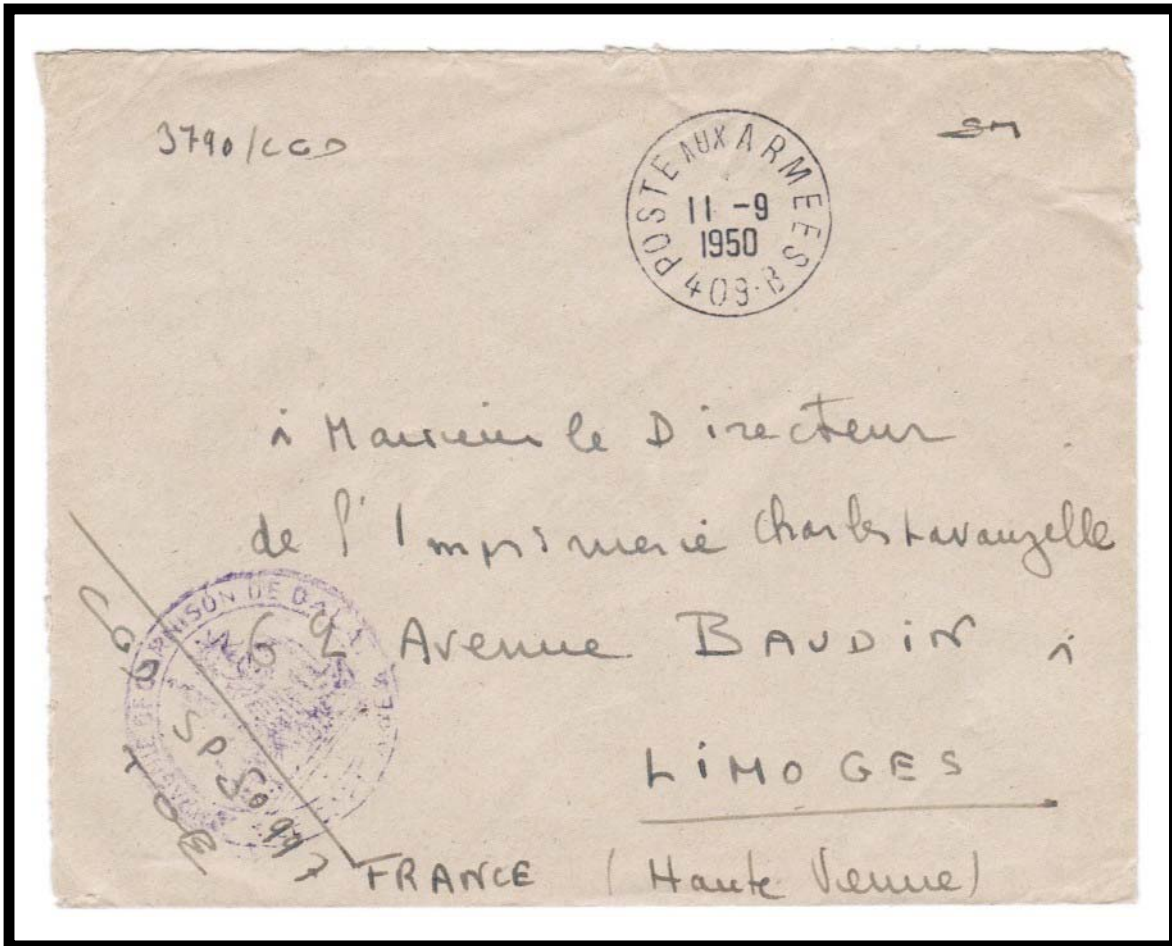 3790/CGD
SM
POSTE AUX ARMEES
11 -9
1950
409·B
à Monsieur le Directeur
de l'Imprimerie Charles Lavauzelle
62 Avenue BAUDIN à
LIMOGES
FRANCE (Haute Vienne)
GARNISON DE DALAT
CGD
SP-50.997
TOE